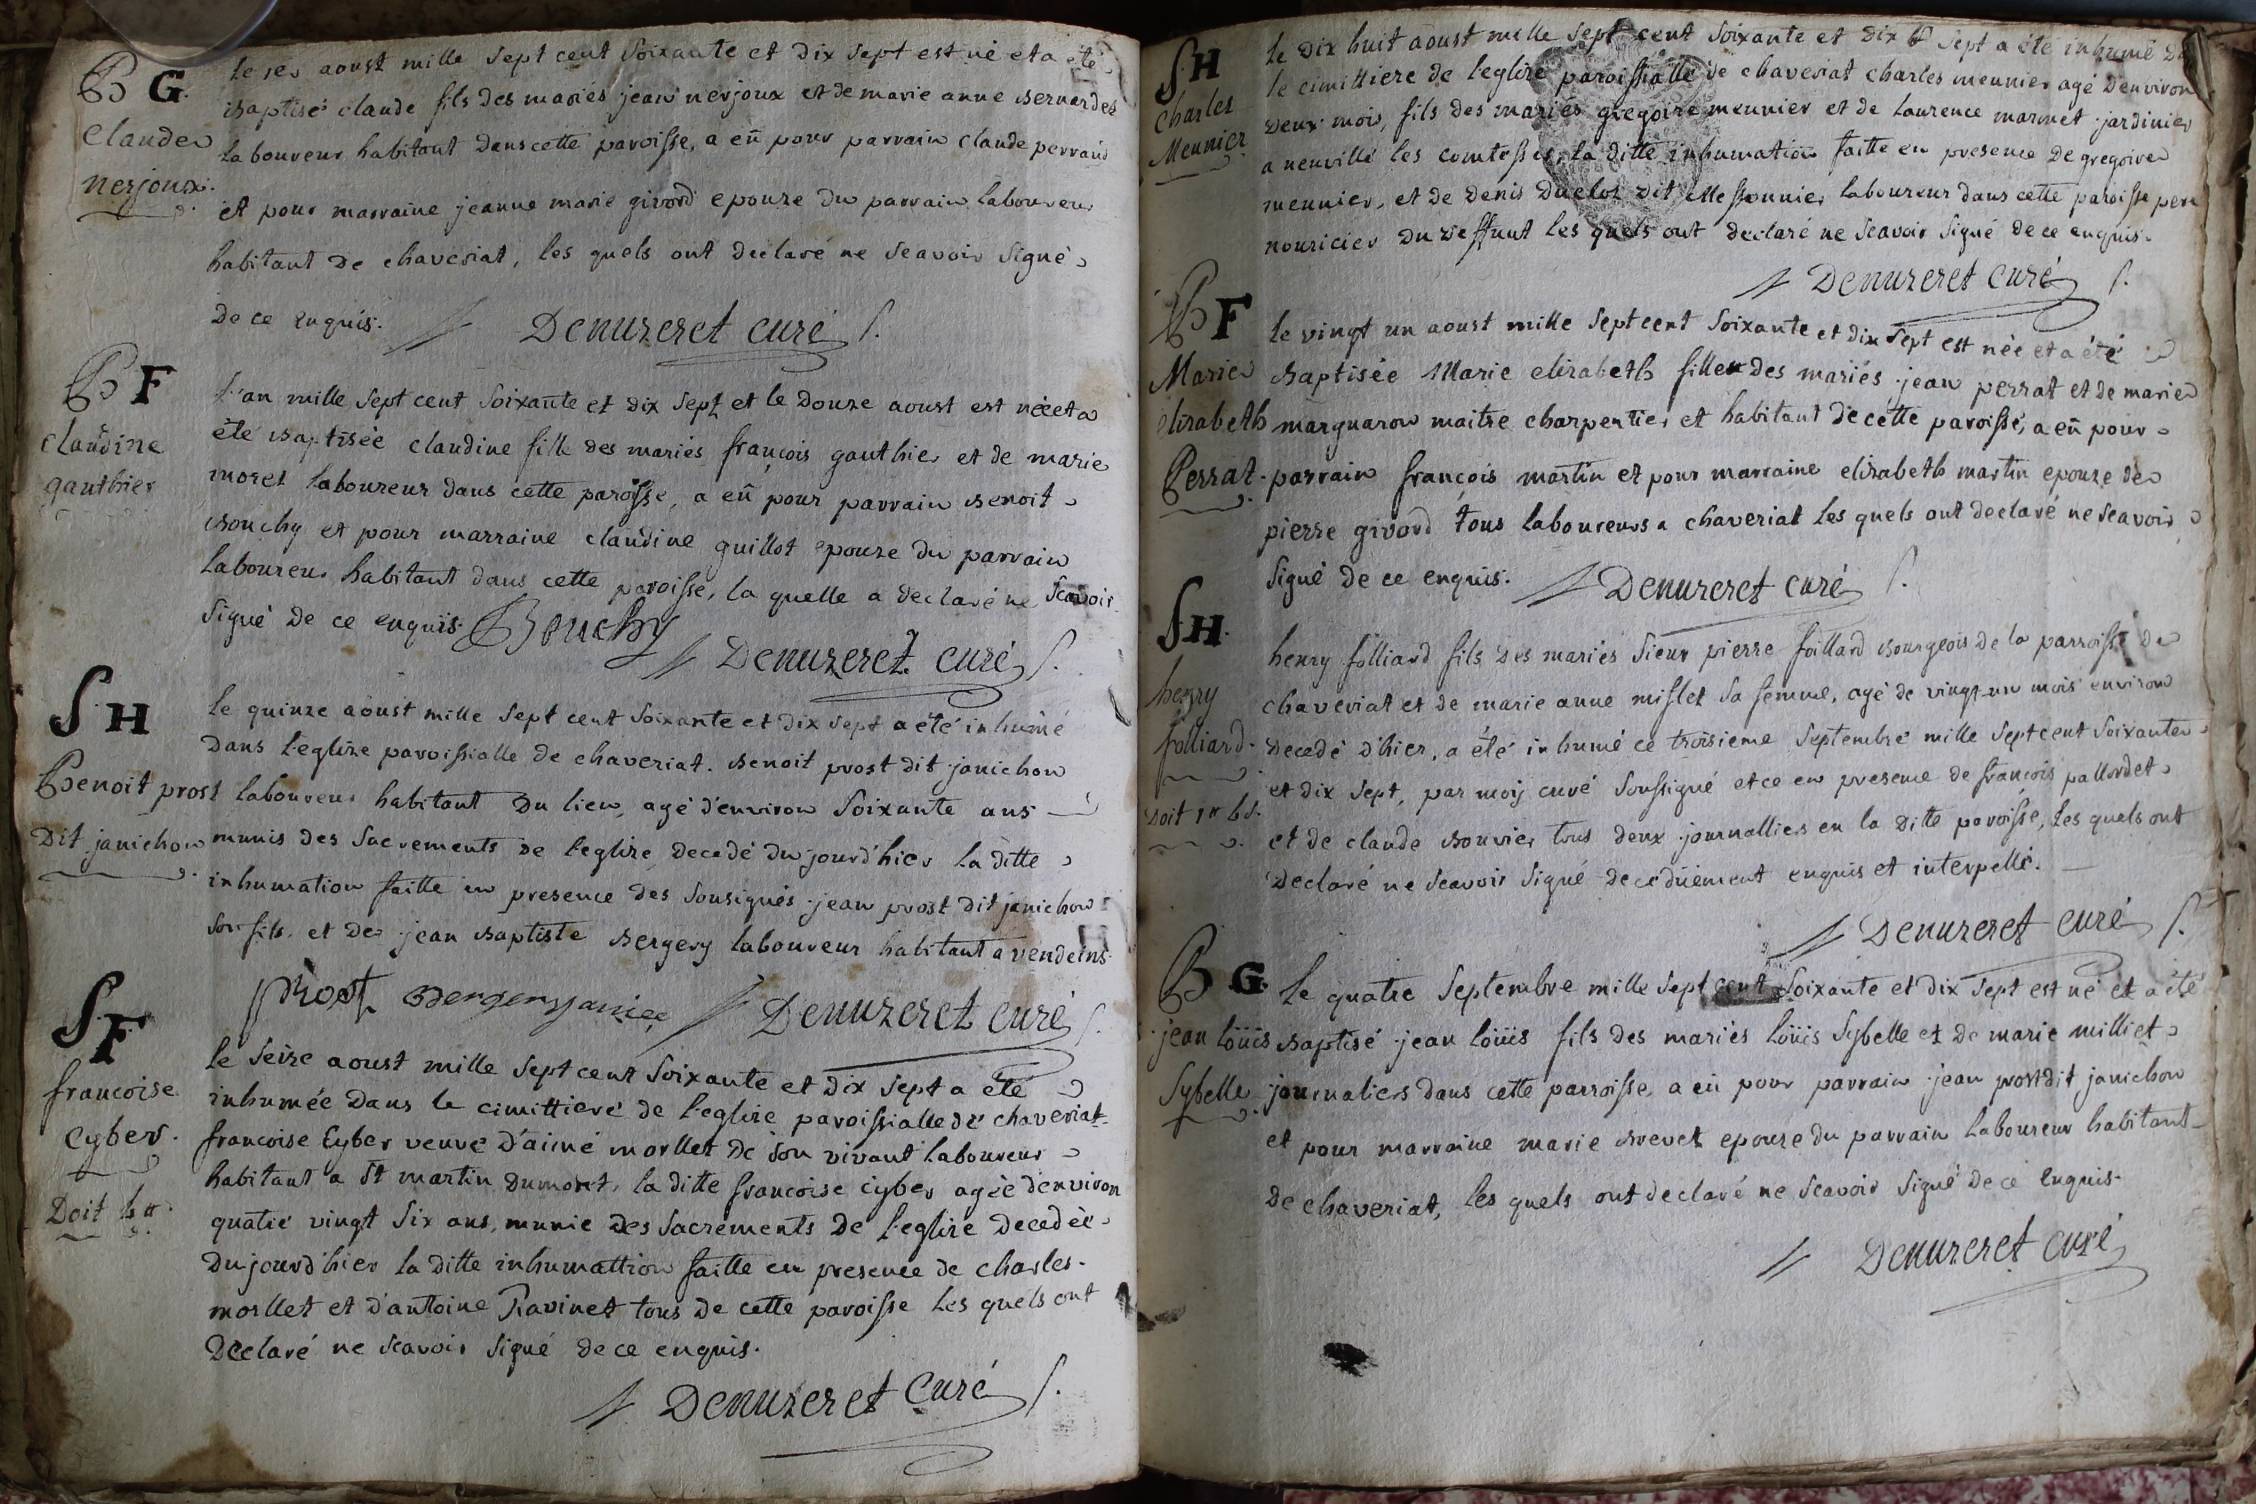 B G.
Claude
nerjoux.
le 1er aoust mille sept cent soixante et dix sept est né et a été
baptisé claude fils des mariés jean nerjoux et de marie anne bernardet
laboureur habitant dans cette paroisse, a eû pour parrain claude perraud
et pour marraine jeanne marie girord epouze du parrain laboureur
habitant de chaveriat, les quels ont declaré ne scavoir signé
de ce enquis. Denuzeret curé
B F
claudine
gauthier
l'an mille sept cent soixante et dix sept et le douze aoust est née et a
été baptisée claudine fille des mariés françois gauthier et de marie
morel laboureur dans cette paroisse, a eû pour parrain benoit
bouchy et pour marraine claudine guillot epouze du parrain
laboureur habitant dans cette paroisse, la quelle a declaré ne scavoir
signé de ce enquis. Bouchy
Denuzeret curé
S H
Benoit prost
dit janichon
le quinze aoust mille sept cent soixante et dix sept a été inhumé
dans l'eglize paroissialle de chaveriat. benoit prost dit janichon
laboureur habitant du lieu, agé d'environ soixante ans
munis des sacrements de l'eglize decedé du jourd'hier la ditte
inhumation faitte en presence des sousignés jean prost dit janichon
son fils, et de jean baptiste bergery laboureur habitant a vendeins
prost Denuzeret curé
S F
francoise
cyber.
Doit
le seize aoust mille sept cent soixante et dix sept a été
inhumée dans le cimittiere de l'eglize paroissialle de chaveriat
francoise Cyber veuve d'aimé morllet de son vivant laboureur
habitant a St martin dumont, la ditte francoise cyber agée d'environ
quatre vingt six ans, munie des sacrements de l'eglize decedée
du jourd'hier la ditte inhumattion faitte en presence de charles
morllet et d'antoine Ravinet tous de cette paroisse les quels ont
declaré ne scavoir signé de ce enquis.
Denuzeret curé
S H
charles
Meunier
le dix huit aoust mille sept cent soixante et dix sept a été inhumé da
le cimittiere de l'eglize paroissialle de chaveriat charles meunier agé d'environ
deux mois, fils des mariés gregoire meunier et de laurence marmet jardinier
a neuville les comtesses, la ditte inhumation faitte en presence de gregoire
meunier, et de denis duclos dit Messonnier laboureur dans cette paroisse pere
nouricier du deffunt les quels ont declaré ne scavoir signé de ce enquis.
Denuzeret curé
B F
Marie
elizabeth
Perrat.
le vingt un aoust mille sept cent soixante et dix sept est née et a été
baptisée Marie elizabeth fille des mariés jean perrat et de marie
marguaron maitre charpentier et habitant de cette paroisse, a eû pour
parrain françois martin et pour marraine elizabeth martin epouze de
pierre girord tous laboureurs a chaveriat les quels ont declaré ne scavoir
signé de ce enquis. Denuzeret curé
S H.
henry
folliard.
doit
henry folliard fils des mariés sieur pierre foillard bourgeois de la parroisse de
chaveriat et de marie anne mislet sa femme, agé de vingt un mois environ
decedé d'hier, a été inhumé ce troisieme septembre mille sept cent soixante
et dix sept, par moy curé soussigné et ce en presence de françois pallordet
et de claude bouvier tous deux journalliers en la ditte paroisse, les quels ont
declaré ne scavoir signé de ce düement enquis et interpellé.
Denuzeret curé
B G.
jean loüis
Sybelle
le quatre septembre mille sept cent soixante et dix sept est né et a été
baptisé jean loüis fils des mariés loüis Sybelle et de marie milliet
journaliers dans cette parroisse, a eû pour parrain jean prost dit janichon
et pour marraine marie brevet epouze du parrain laboureur habitant
de chaveriat, les quels ont declaré ne scavoir signé de ce enquis.
Denuzeret curé